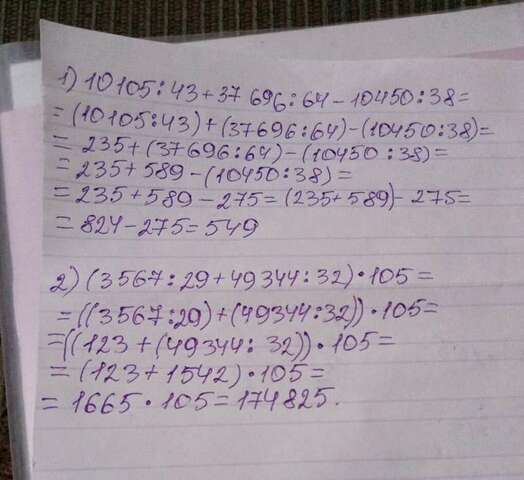 1) 10105:43+37696:64-10450:38=
=(10105:43)+(37696:64)-(10450:38)=
= 235+(37696:64)-(10450:38)=
= 235+589-(10450:38)=
= 235+589-275=(235+589)-275=
= 824-275=549
2) (3567:29+49344:32)·105=
=((3567:29)+(49344:32))·105=
=((123+(49344:32))·105=
= (123+1542)·105=
= 1665·105=174825.